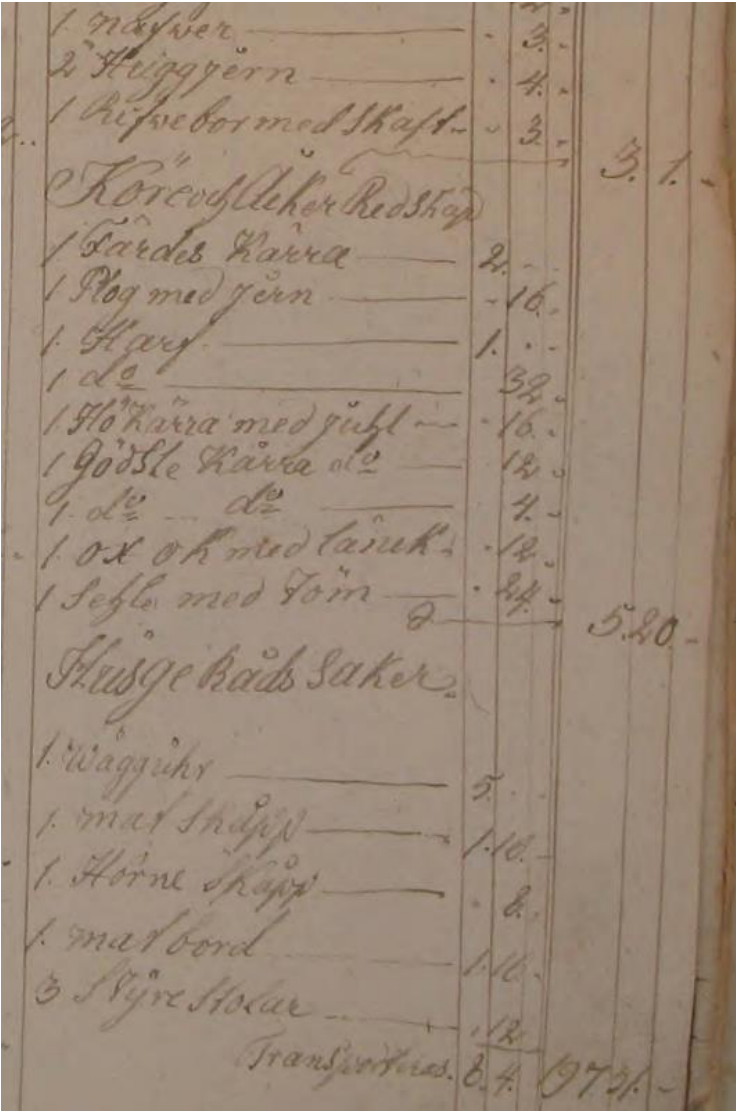 2.
1 nafwer - 3. -
2 Huggjern - 4. -
1 Rifwebor med Skaft - 3. -
3. 1. -
Köre och Åker Redskap
1 Färdes Kärra 2. - -
1 Plog med jern - 16. -
1. Harf 1. - -
1 do 32 -
1. Hö Kärra med juhl - 16. -
1 Gödsle Kärra do 12 -
1. do do 4. -
1. ox ok med länk - 12
1 Sehle med Töm - 24. -
5. 20. -
Husgeråds Saker.
1. Wägguhr 5. - -
1. mat Skåpp 1. 16. -
1. Hörne Skåpp - 8.
1. mat bord 1. 16. -
3 Styre Stolar - 12
Transporteras. 8. 4. 197 31. -